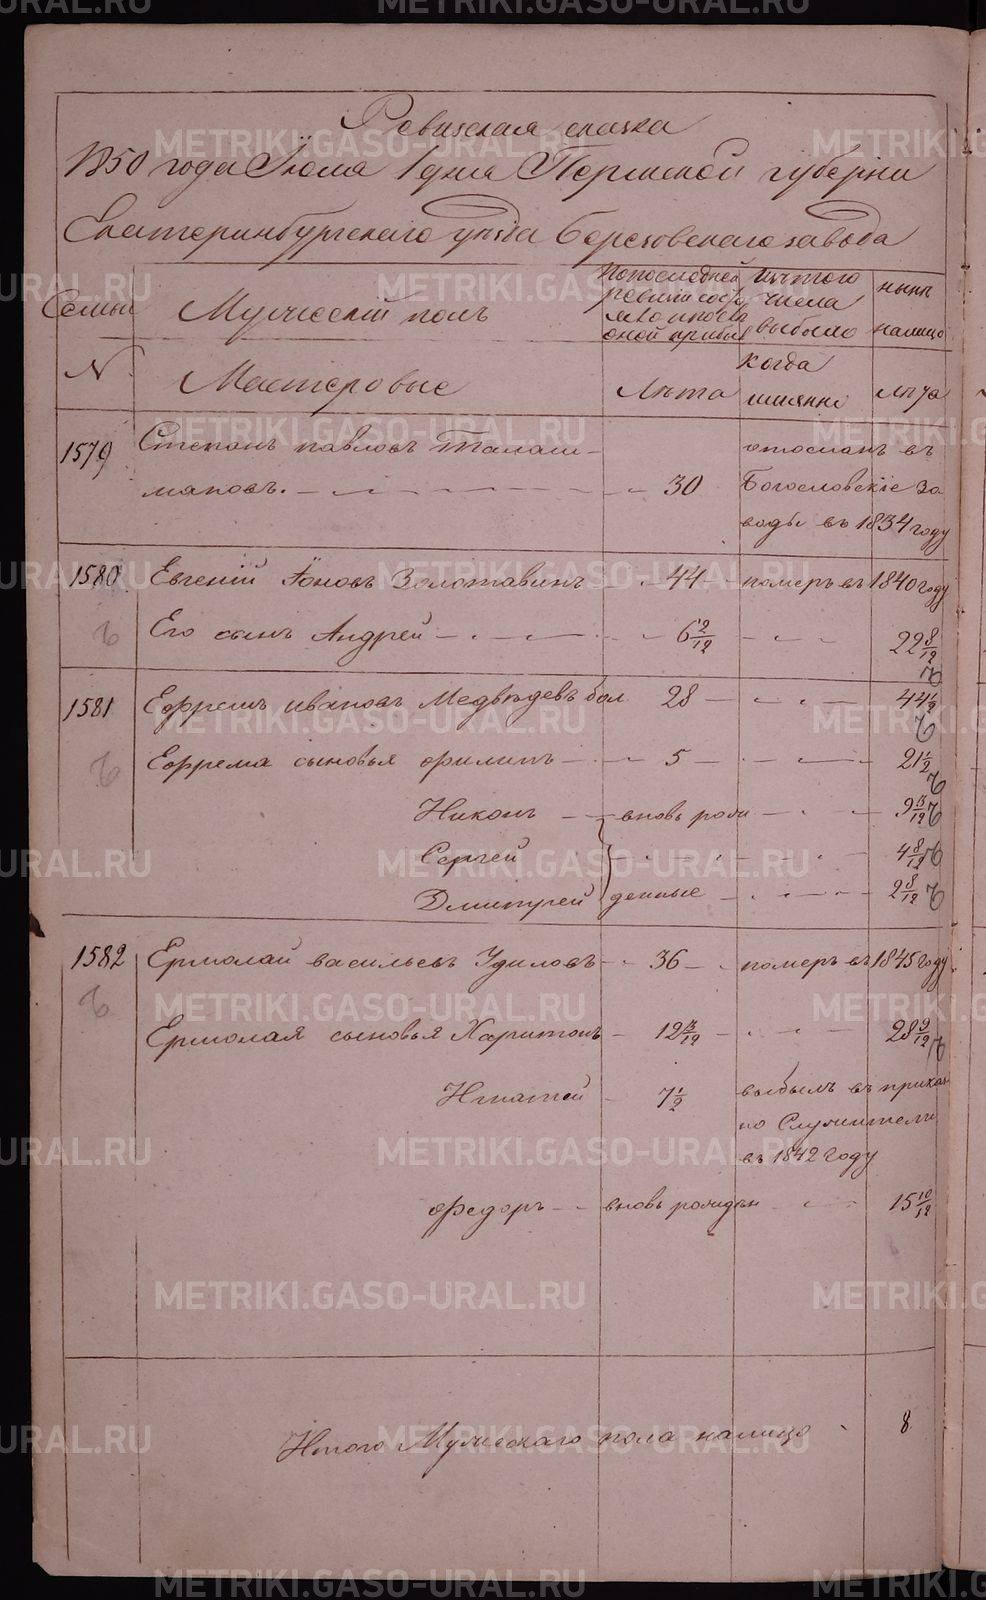 Ревизская сказка
1850 года Июля 1 дня Пермской губернии
Екатеринбургскаго уезда Березовскаго завода
Семьи
Мужеский полъ
По последней ревизии состояло и после оной прибыло
Изъ того числа выбыло
ныне налицо
N
Мастеровые
Лета
когда именно
лета
1579 Степанъ павловъ Талаш-
мановъ. 30
отосланъ въ
Богословскіе за
воды въ 1834 году
1580 Евгеній Іоновъ Золотавинъ 44 померъ въ 1840 году
Его сынъ Андрей 6 2/12 22 8/12
1581 Ефремъ ивановъ Медведевъ бол 28 44 1/2
Ефрема сыновья филипъ 5 21 1/2
Никонъ вновь рож 9 3/12
Сергей 4 8/12
Дмитрей денные 2 8/12
1582 Ермолай васильевъ Удиловъ 36 померъ въ 1845 году
Ермолая сыновья Харитонъ 12 3/12 28 9/12
Игнатей 7 1/2 выбылъ въ приказ
но Служители
въ 1842 году
федоръ вновь рожден 15 10/12
Итого Мужескаго пола налицо 8
METRIKI.GASO-URAL.RU